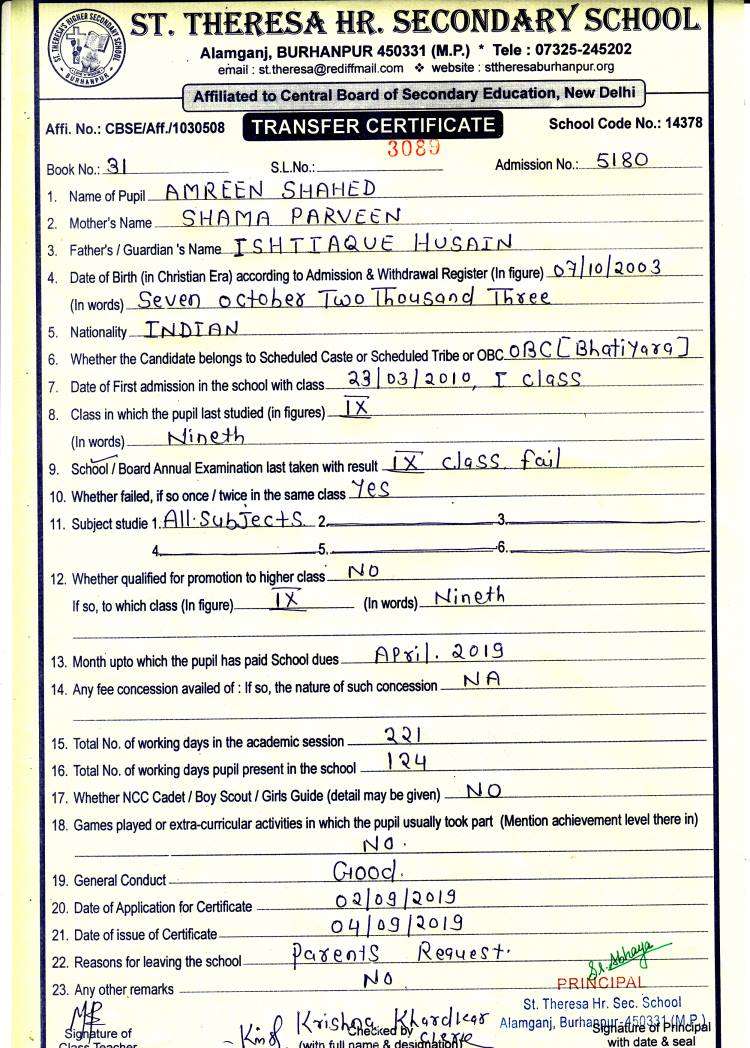 ST. THERESA'S HIGHER SECONDARY SCHOOL
BURHANPUR
ST. THERESA HR. SECONDARY SCHOOL
Alamganj, BURHANPUR 450331 (M.P.) * Tele : 07325-245202
email : st.theresa@rediffmail.com ❖ website : sttheresaburhanpur.org
Affiliated to Central Board of Secondary Education, New Delhi
Affi. No.: CBSE/Aff./1030508 TRANSFER CERTIFICATE School Code No.: 14378
Book No.: 31 S.L.No.: 3089 Admission No.: 5180
1. Name of Pupil AMREEN SHAHED
2. Mother's Name SHAMA PARVEEN
3. Father's / Guardian 's Name ISHTIAQUE HUSAIN
4. Date of Birth (in Christian Era) according to Admission & Withdrawal Register (In figure) 07/10/2003
(In words) Seven october Two Thousand Three
5. Nationality INDIAN
6. Whether the Candidate belongs to Scheduled Caste or Scheduled Tribe or OBC OBC [Bhatiyara]
7. Date of First admission in the school with class 23/03/2010, I class
8. Class in which the pupil last studied (in figures) IX
(In words) Nineth
9. School / Board Annual Examination last taken with result IX class fail
10. Whether failed, if so once / twice in the same class Yes
11. Subject studie 1. All.Subjects 2. 3.
4. 5. 6.
12. Whether qualified for promotion to higher class NO
If so, to which class (In figure) IX (In words) Nineth
13. Month upto which the pupil has paid School dues April. 2019
14. Any fee concession availed of : If so, the nature of such concession NA
15. Total No. of working days in the academic session 221
16. Total No. of working days pupil present in the school 124
17. Whether NCC Cadet / Boy Scout / Girls Guide (detail may be given) NO
18. Games played or extra-curricular activities in which the pupil usually took part (Mention achievement level there in)
NO.
19. General Conduct Good.
20. Date of Application for Certificate 02/09/2019
21. Date of issue of Certificate 04/09/2019
22. Reasons for leaving the school Parents Request.
23. Any other remarks NO
Sr. Abhaya
PRINCIPAL
St. Theresa Hr. Sec. School
Alamganj, Burhanpur-450331 (M.P.)
Krishna Khardkar
Clerk
Signature of Checked by Signature of Principal
Class Teacher (with full name & designation) with date & seal